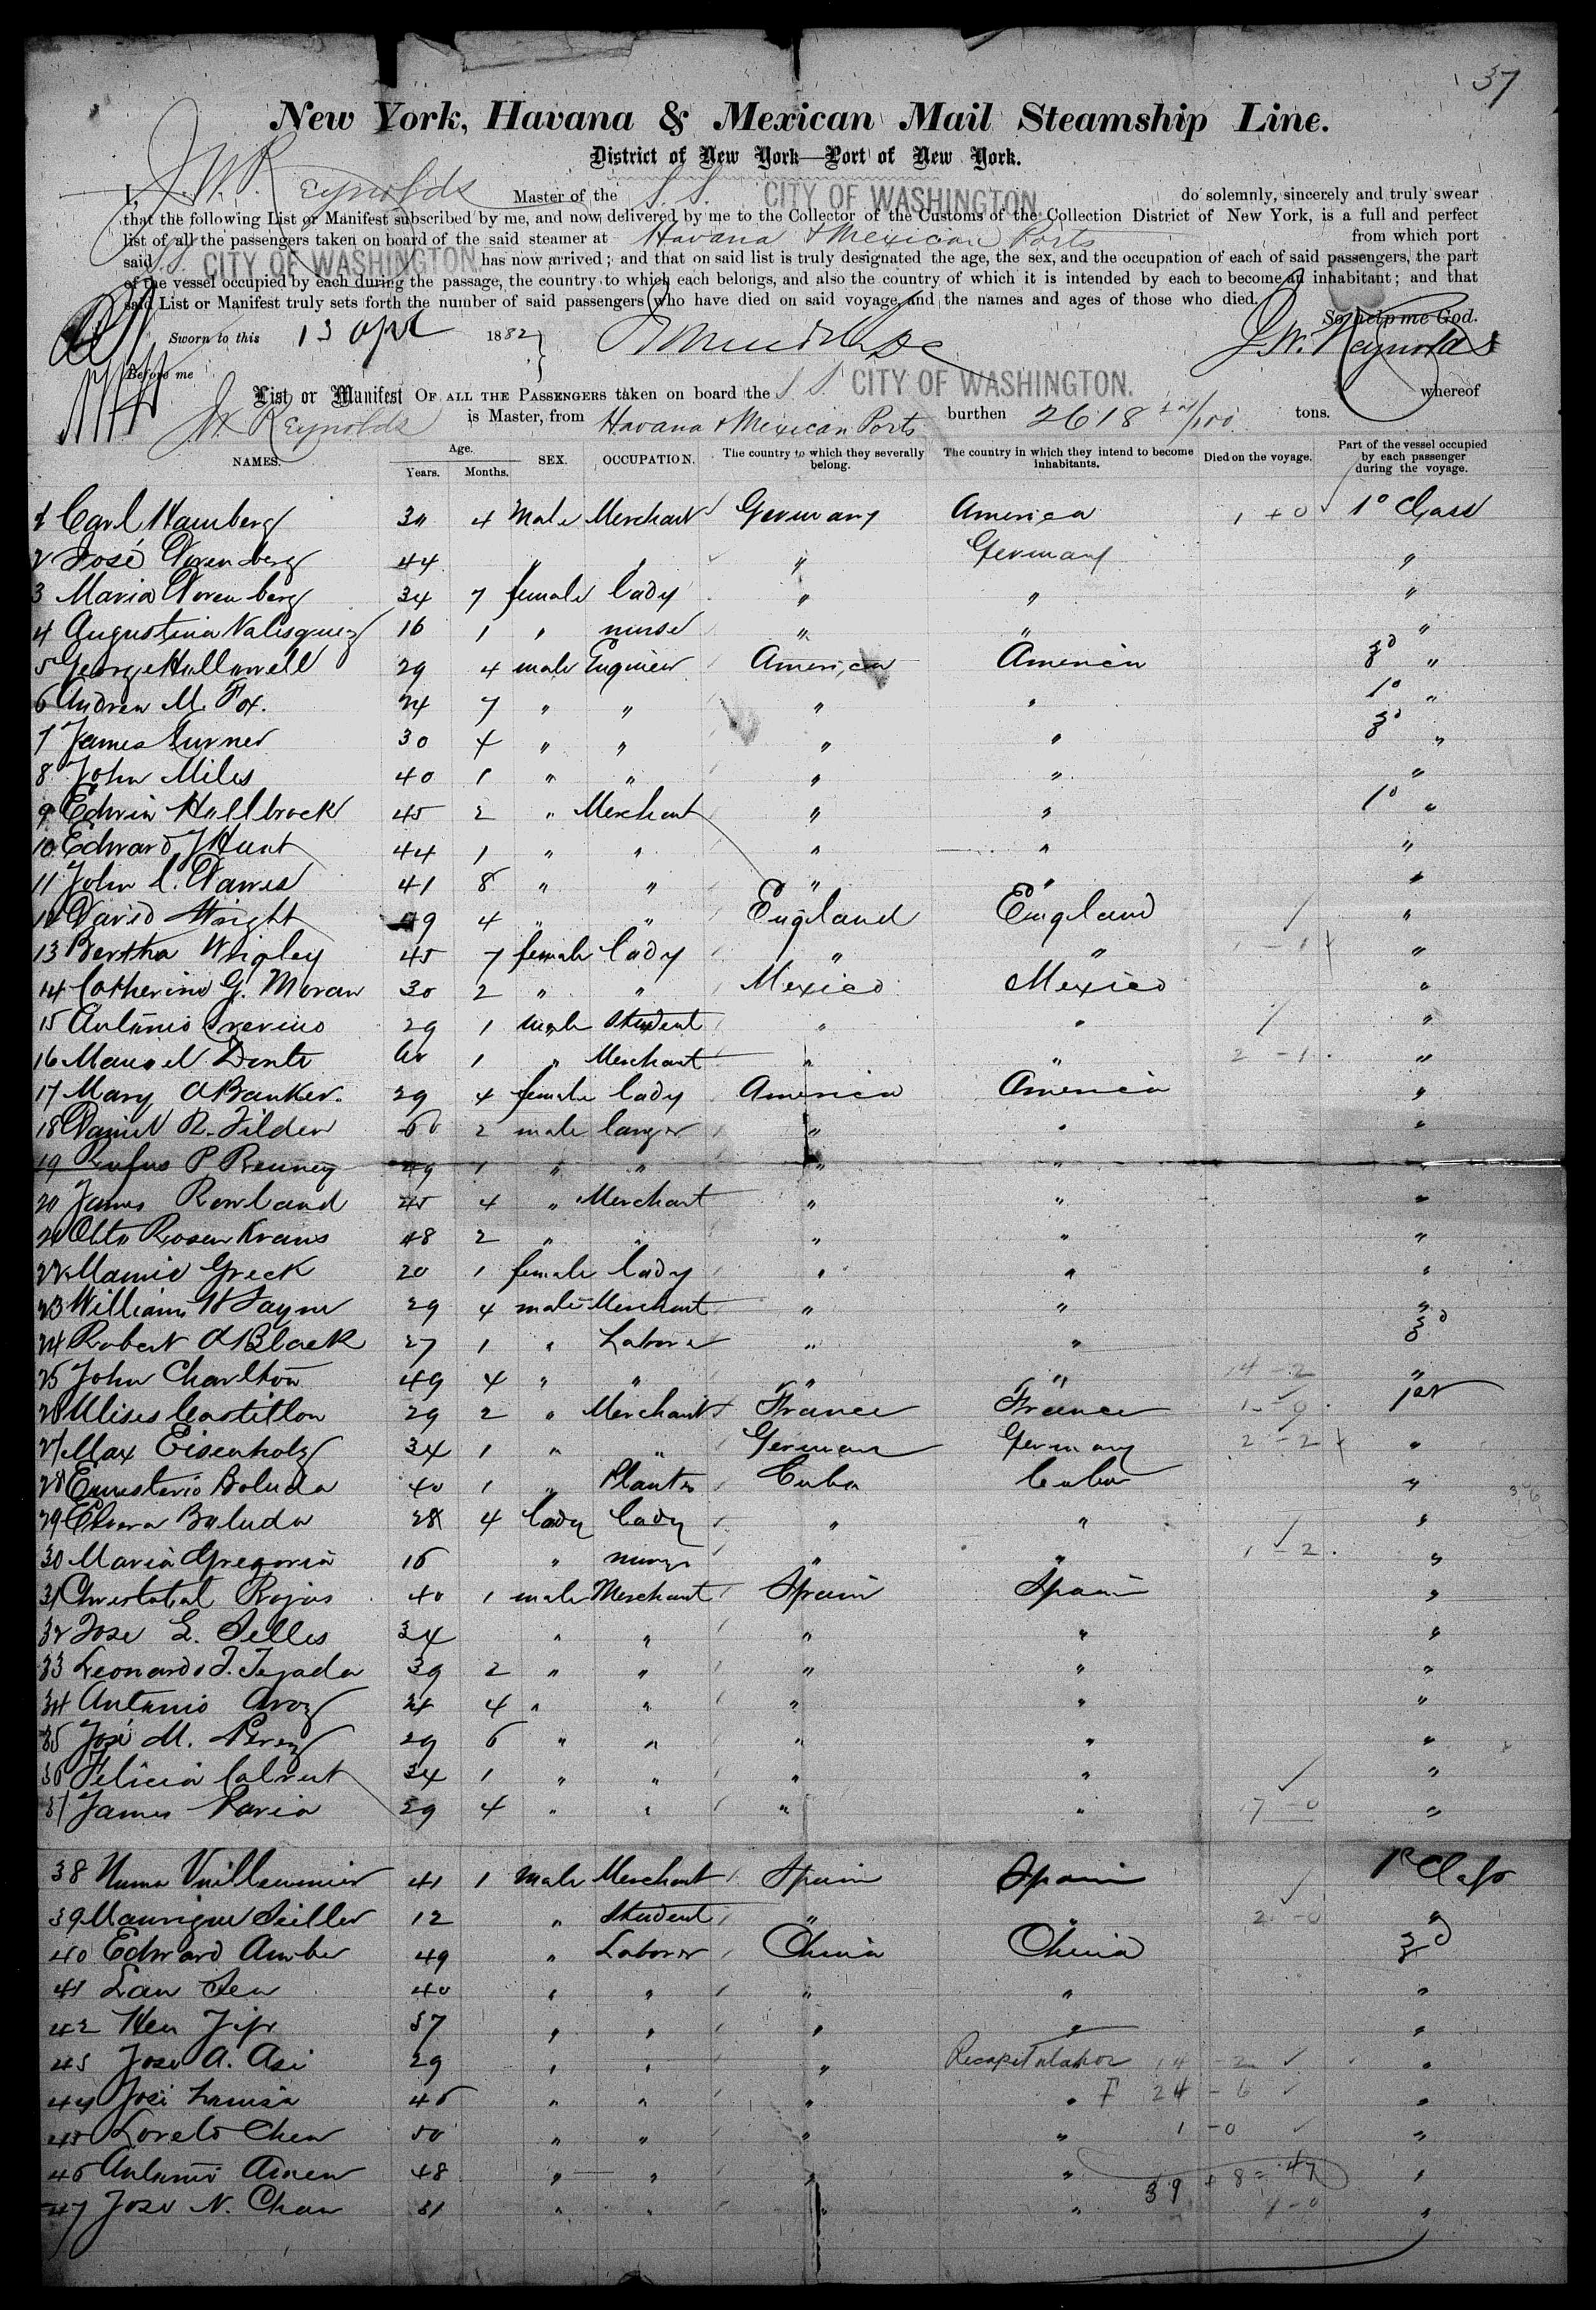 37
New York, Havana & Mexican Mail Steamship Line.
District of New York—Port of New York.
I, J. W. Reynolds Master of the S. S. CITY OF WASHINGTON do solemnly, sincerely and truly swear
that the following List or Manifest subscribed by me, and now delivered by me to the Collector of the Customs of the Collection District of New York, is a full and perfect
list of all the passengers taken on board of the said steamer at Havana & Mexican Ports from which port
said S. S. CITY OF WASHINGTON. has now arrived; and that on said list is truly designated the age, the sex, and the occupation of each of said passengers, the part
of the vessel occupied by each during the passage, the country to which each belongs, and also the country of which it is intended by each to become an inhabitant; and that
said List or Manifest truly sets forth the number of said passengers who have died on said voyage, and the names and ages of those who died.
So help me God.
Sworn to this 13 Apl 1882 J. W. Reynolds
Before me
List or Manifest OF ALL THE PASSENGERS taken on board the S S CITY OF WASHINGTON. whereof
J. W. Reynolds is Master, from Havana & Mexican Ports burthen 2618 /100 tons.
NAMES. Age. Years. Months. SEX. OCCUPATION. The country to which they severally belong. The country in which they intend to become inhabitants. Died on the voyage. Part of the vessel occupied by each passenger during the voyage.
1 Carl Hamberg 30 4 Male Merchant Germany America 1 + 0 1º Class
2 José Dorenberg 44 " " " Germany "
3 Maria Dorenberg 34 7 female lady " " "
4 Augustina Valisquez 16 1 " nurse " " "
5 George Hallowell 29 4 male Engineer American America 3d "
6 Andrew M. Fox. 24 7 " " " " 1º "
7 James Turner 30 4 " " " " 3d "
8 John Miles 40 1 " " " " "
9 Edwin Hallbrock 45 2 " Merchant " " 1º "
10 Edward J Hunt 44 1 " " " " "
11 John C. Dawes 41 8 " " " " "
12 David Wright 49 4 " " England England "
13 Bertha Wrigley 45 7 female lady " " 1 - 1 "
14 Catherine G. Moran 30 2 " " Mexico Mexico "
15 Antonio Trevino 29 1 male Student " " "
16 Manuel Donte 60 1 " Merchant " " 2 - 1 "
17 Mary A Banker. 29 4 female lady America America "
18 Daniel R. Tilden 60 2 male lawyer " " "
19 Rufus P Renney 49 1 " " " " "
20 James Rowland 45 4 " Merchant " " "
21 Otto Rosenkrans 48 2 " " " " "
22 Mamie Greck 20 1 female lady " " "
23 William H Sayne 29 4 male Merchant " " "
24 Robert A Black 27 1 " Laborer " " 3d
25 John Charlton 49 4 " " " " 14 - 2 "
26 Ulises Castillon 29 2 " Merchant France France 1 - 0 1st
27 Max Eisenholz 34 1 " " German Germany 2 - 2 "
28 Emeterio Boluda 40 1 " Planter Cuba Cuba "
29 Elvera Boluda 28 4 lady lady " " "
30 Maria Gregoria 16 " nurse " " 1 - 2 "
31 Christobal Rojas 40 1 male Merchant Spain Spain "
32 Jose E. Selles 34 " " " " "
33 Leonardo J. Tejada 39 2 " " " " "
34 Antonio Aroz 24 4 " " " " "
35 José M. Perez 29 6 " " " " "
36 Felicia Calvent 34 1 " " " " "
37 James Paria 29 4 " " " " 7 - 0 "
38 Numa Vuillaumier 41 1 male Merchant Spain Spain 1st Class
39 Manrique Seiller 12 " Student " " 2 - 0 "
40 Edward Amber 49 " Laborer China China 3d
41 Lau Sen 40 " " " " "
42 Hen Jip 37 " " " " "
43 Jose A. Asi 29 " " " Recapitulation 14 - 2 "
44 José Louisa 46 " " " " F 24 - 6 "
45 Loreto Chew 50 " " " " 1 - 0 "
46 Antonio Amen 48 " " " " 39 + 8 = 47 "
47 Jose N. Chan 31 " " " " 1 - 0 "